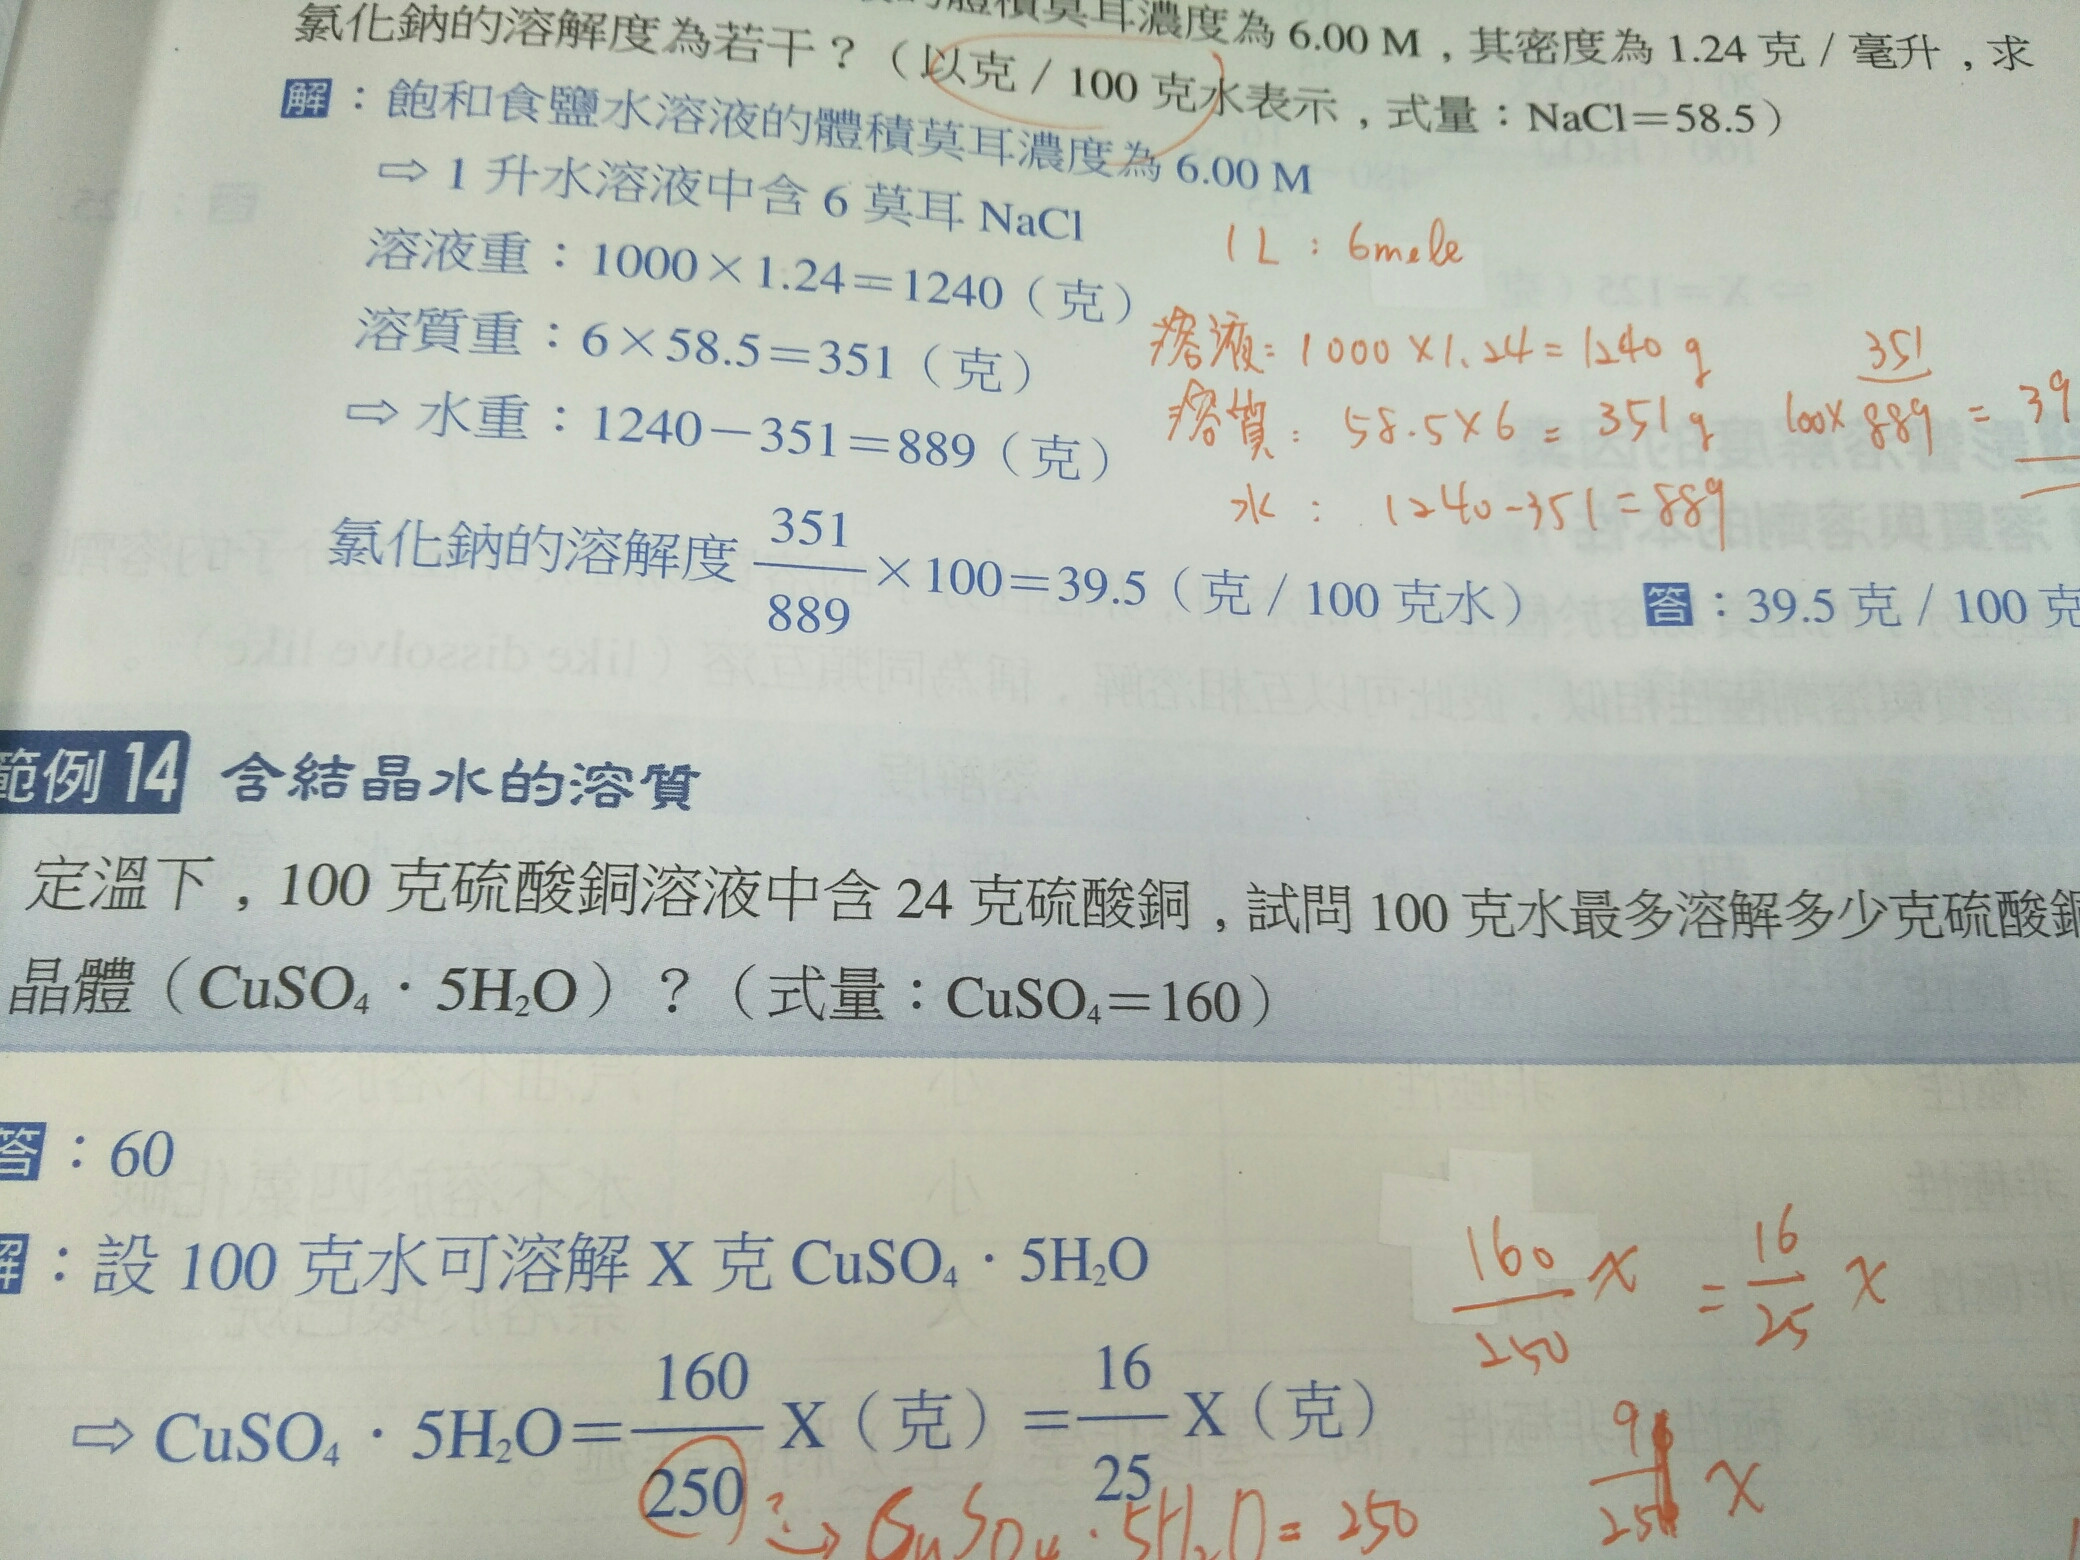 體積莫耳濃度為 6.00 M，其密度為 1.24 克 / 毫升，求
氯化鈉的溶解度為若干？（以克 / 100 克水表示，式量：NaCl＝58.5）
解：飽和食鹽水溶液的體積莫耳濃度為 6.00 M
⇨ 1 升水溶液中含 6 莫耳 NaCl
1 L : 6 mole
溶液重：1000×1.24＝1240（克）
溶液: 1000×1.24=1240 g
溶質重：6×58.5＝351（克）
溶質: 58.5×6 = 351 g
100× 351/889 = 39
⇨ 水重：1240－351＝889（克）
水 : 1240-351=889
氯化鈉的溶解度 351/889 ×100＝39.5（克 / 100 克水）
答：39.5 克 / 100 克
範例 14 含結晶水的溶質
定溫下，100 克硫酸銅溶液中含 24 克硫酸銅，試問 100 克水最多溶解多少克硫酸銅
晶體（CuSO₄ · 5H₂O）？（式量：CuSO₄＝160）
答：60
解：設 100 克水可溶解 X 克 CuSO₄ · 5H₂O
160/250 X = 16/25 X
⇨ CuSO₄ · 5H₂O＝160/250 X（克）＝16/25 X（克）
9/25 X
CuSO₄ · 5H₂O = 250